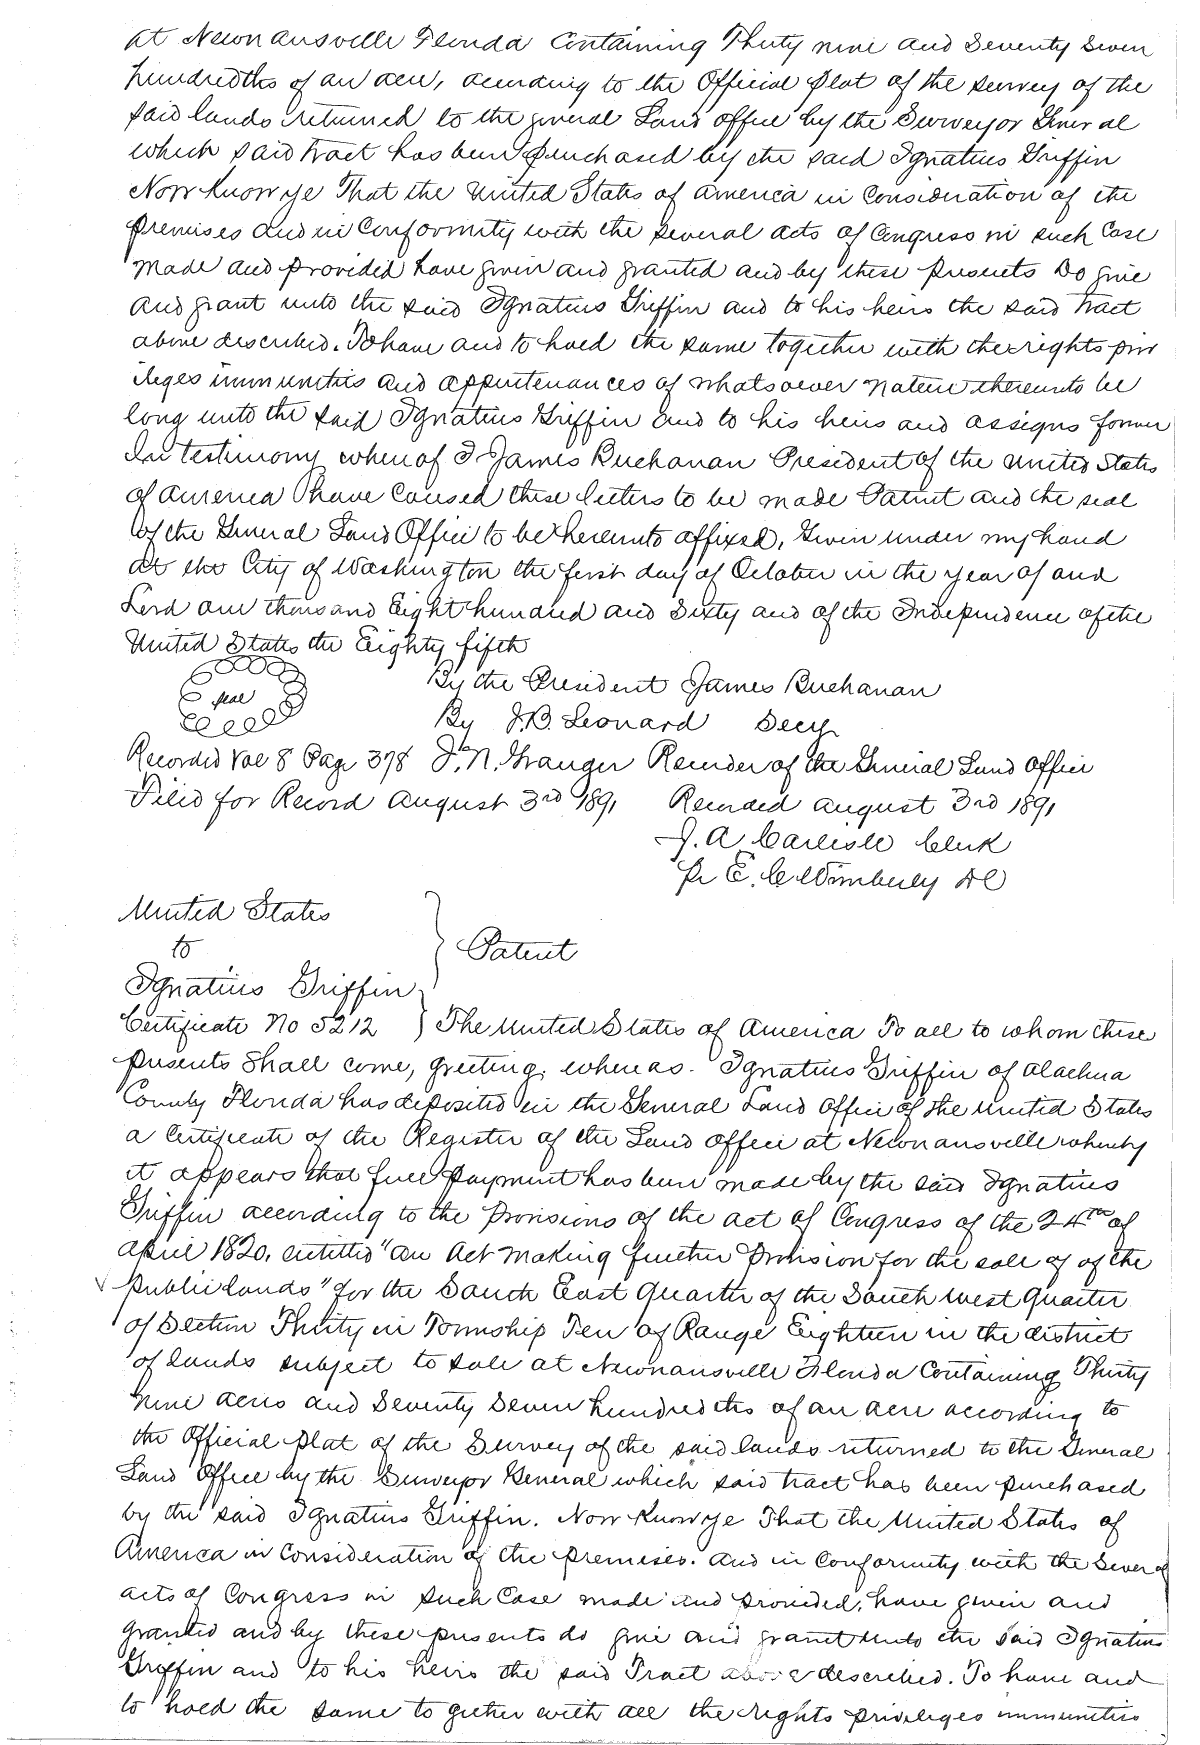 at Newnansville Florida Containing Thirty nine and Seventy Seven
hundredths of an acre, according to the Official plat of the survey of the
said lands returned to the general Land office by the Surveyor General
which said tract has been purchased by the said Ignatius Griffin
Now Know ye That the United States of America in Consideration of the
premises and in Conformity with the several acts of Congress in such Case
made and provided have given and granted and by these presents Do give
and grant unto the said Ignatius Griffin and to his heirs the said tract
above described. To have and to hold the same together with the rights priv
ileges immunities and appurtenances of whatsoever nature thereunto be
long unto the said Ignatius Griffin and to his heirs and assigns forever
In testimony whereof I James Buchanan President of the United States
of America have Caused these letters to be made Patent and the seal
of the General Land Office to be hereunto affixed, Given under my hand
at the City of Washington the first day of October in the year of and
Lord one thousand Eight hundred and Sixty and of the Independence of the
United States the Eighty fifth
seal
By the President James Buchanan
By J. B. Leonard Secy
Recorded Vol 8 Page 378 J. N. Granger Recorder of the General Land Office
Filed for Record August 3rd 1891 Recorded August 3rd 1891
J. A. Carlisle Clerk
Pr E. C. Wimberly DC
United States
to
Patent
Ignatius Griffin
Certificate No 5212 } The United States of America To all to whom these
presents Shall come, greeting. whereas. Ignatius Griffin of Alachua
County Florida has deposited in the General Land Office of the United States
a Certificate of the Register of the Land office at Newnansville whereby
it appears that full payment has been made by the said Ignatius
Griffin according to the provisions of the act of Congress of the 24th of
april 1820, entitled "an Act making further provision for the sale of of the
public lands" for the South East Quarter of the South West Quarter
of Section Thirty in Township Ten of Range Eighteen in the district
of lands subject to sale at Newnansville Florida Containing Thirty
nine acres and Seventy Seven hundredths of an acre according to
the Official plat of the Survey of the said lands returned to the General
Land Office by the Surveyor General which said tract has been purchased
by the said Ignatius Griffin. Now Know ye That the United States of
America in Consideration of the premises. and in Conformity with the Several
acts of Congress in such Case made and provided, have given and
granted and by these presents do give and grant unto the said Ignatius
Griffin and to his heirs the said Tract above described. To have and
to hold the same to gether with all the rights privileges immunities